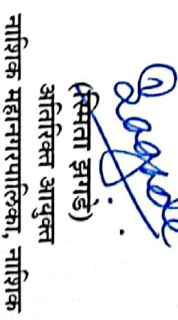 (स्मिता झगडे)
अतिरिक्त आयुक्त
नाशिक महानगरपालिका, नाशिक